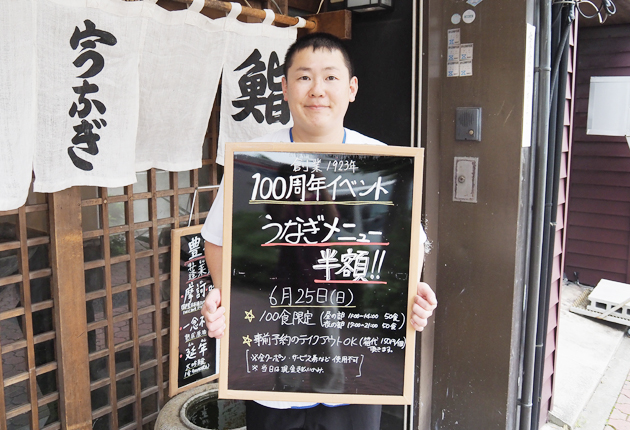 うなぎ
鮨
創業1923年
100周年イベント
うなぎメニュー
半額!!
6月25日(日)
☆100食限定(昼の部 11:00~14:00 50食
夜の部 17:00~21:00 50食)
☆事前予約のテイクアウトOK(箱代150円/個
頂きます。)
※全クーポン・サービス券など使用不可
※当日は現金支払いのみ
豊
摩訶
一念
延年